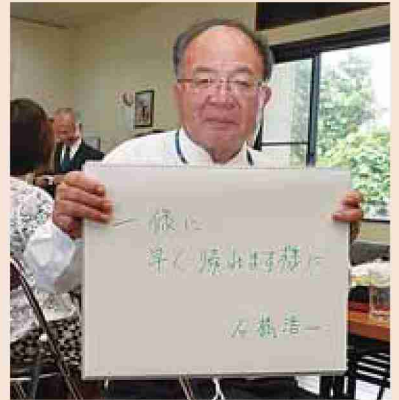 一緒に
早く帰れます様に
石橋浩一